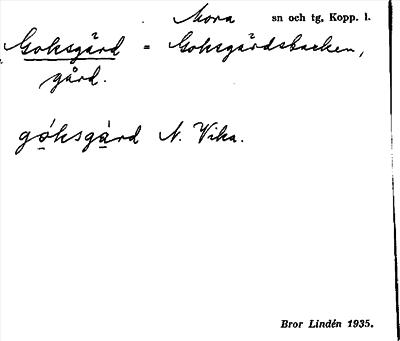 Mora sn och tg, Kopp. l.
Goksgård = Goksgårdsbacken,
gård.
góksgàrd N. Vika.
Bror Lindén 1935.